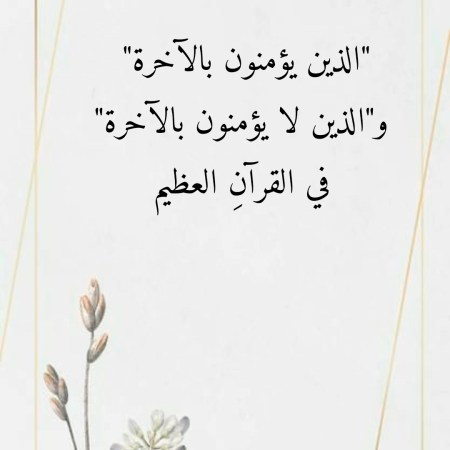 "الذين يؤمنون بالآخرة"
و"الذين لا يؤمنون بالآخرة"
في القرآنِ العظيم